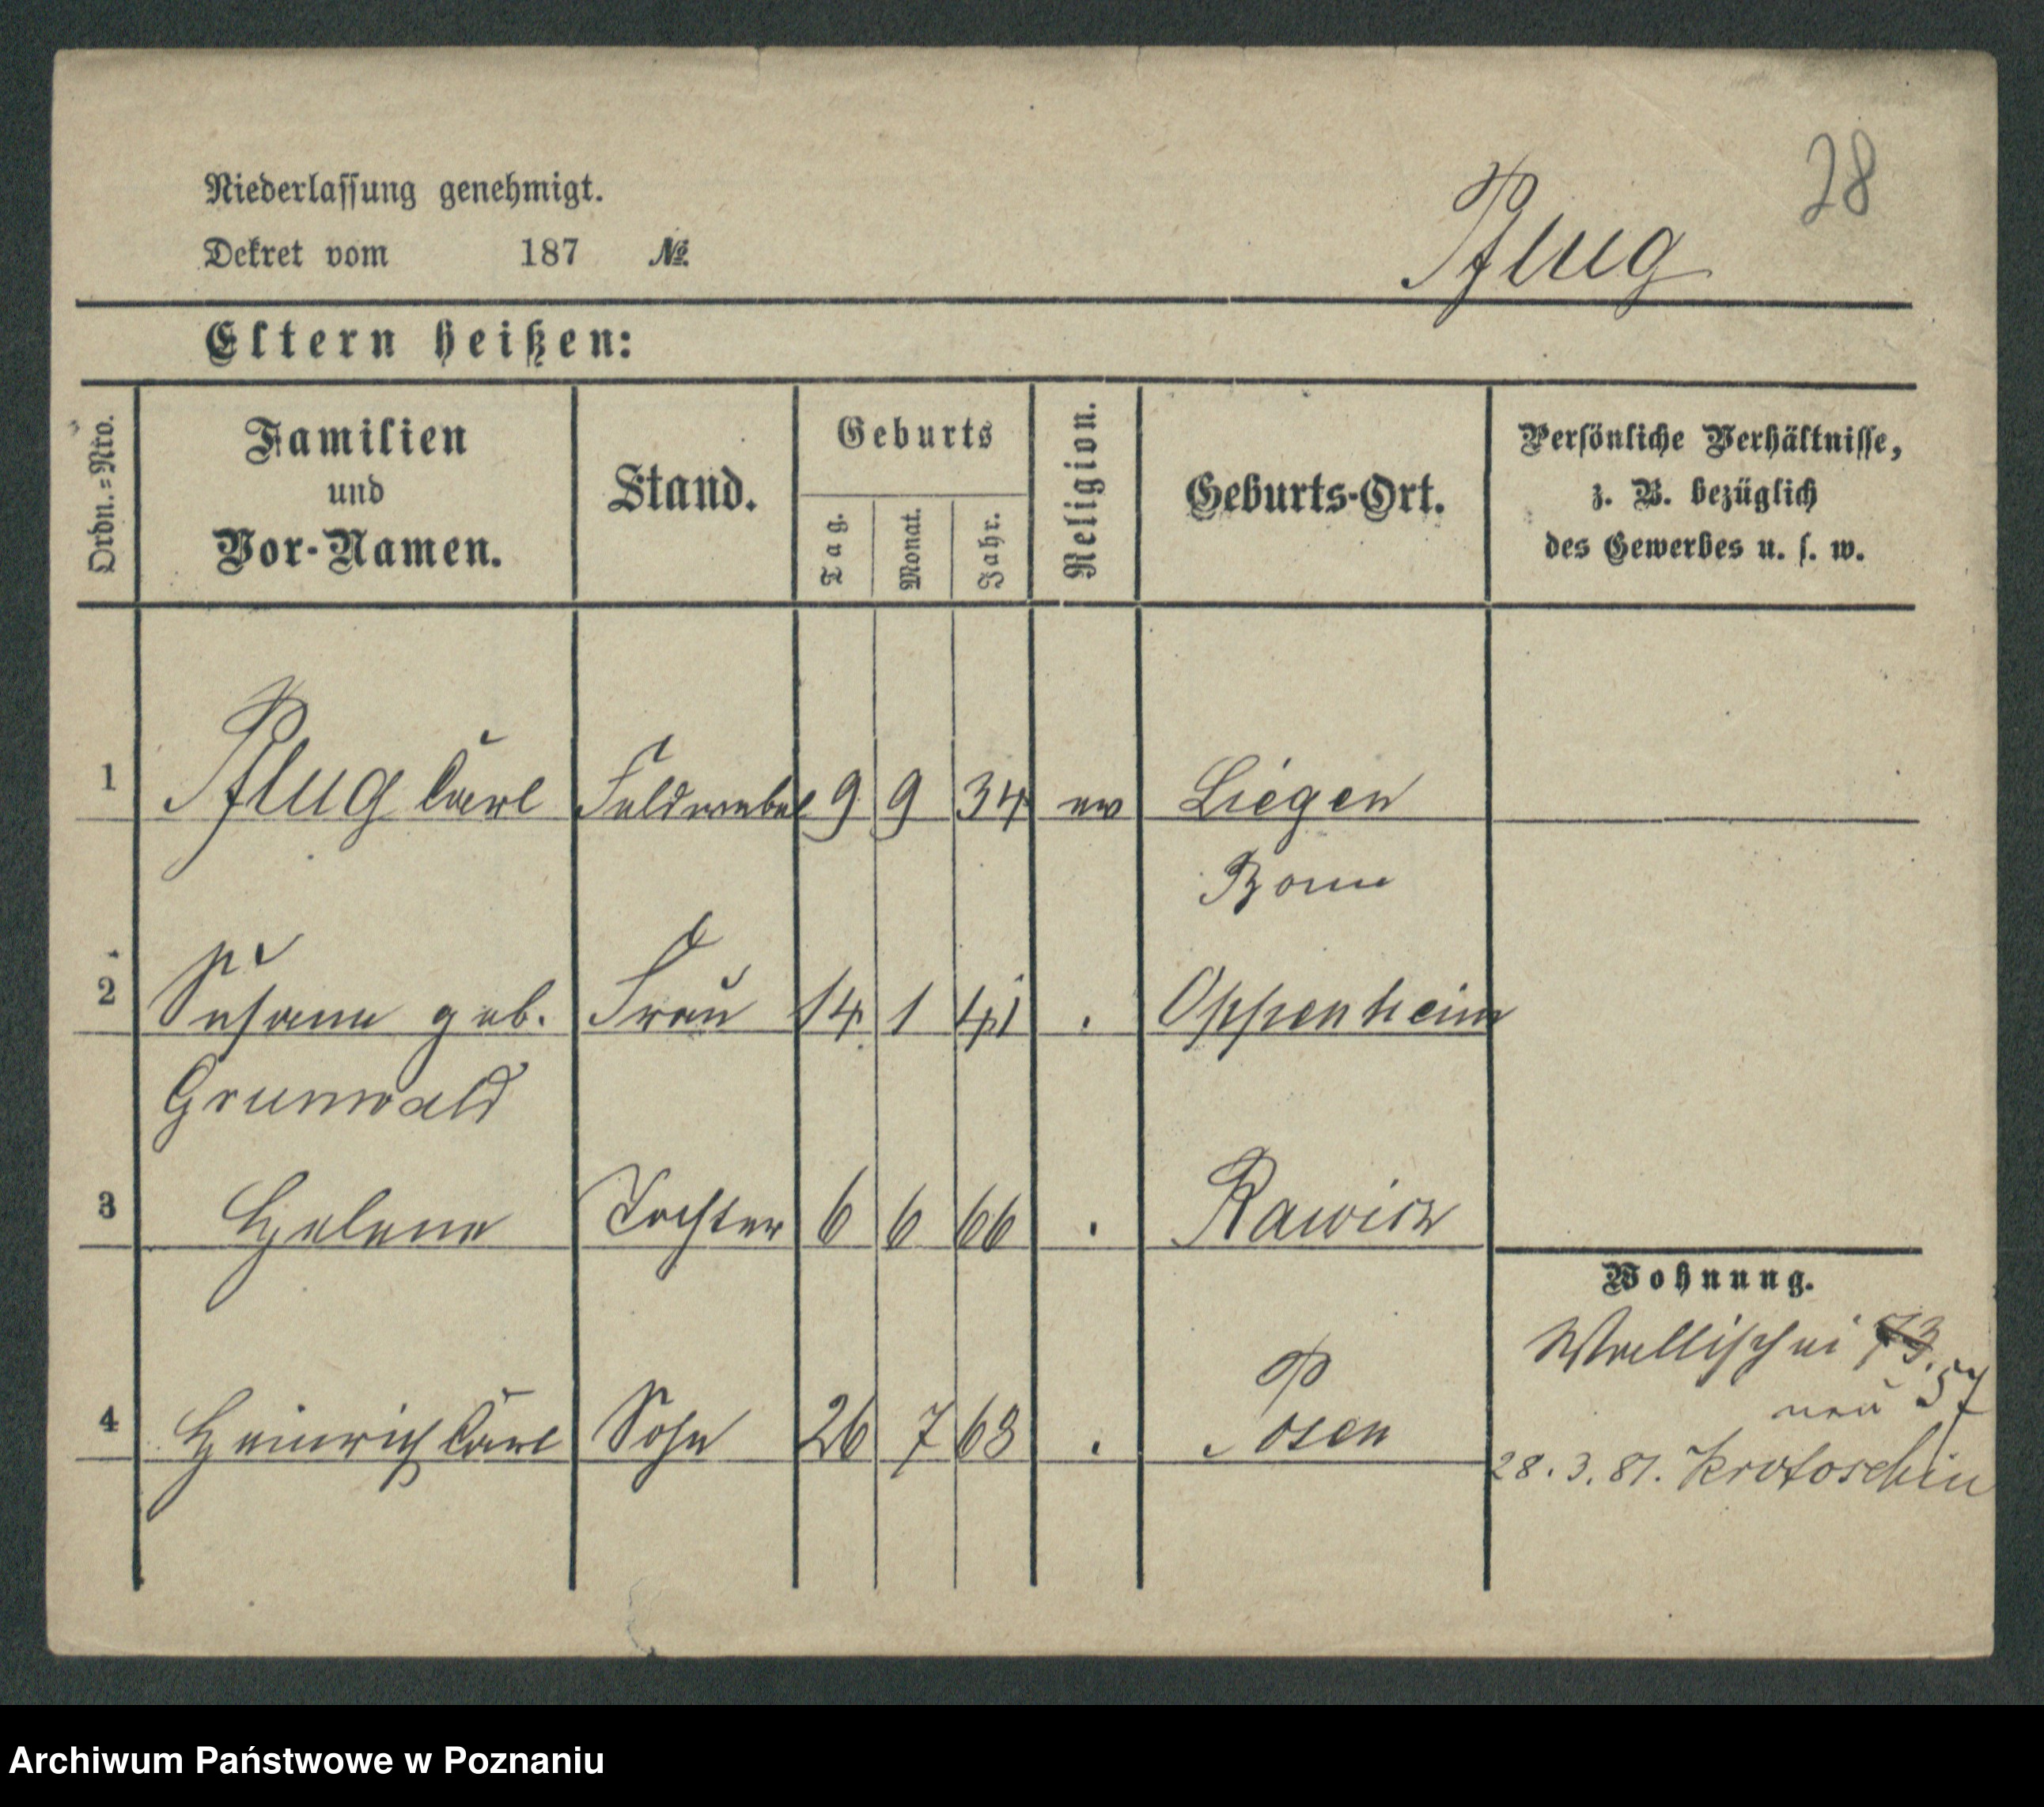 28
Niederlassung genehmigt.
Pflug
Dekret vom 187 №
Eltern heißen:
Ordn.=Nro.
Familien und Vor-Namen.
Stand.
Geburts
Tag.
Monat.
Jahr.
Religion.
Geburts-Ort.
Persönliche Verhältnisse,
z. B. bezüglich
des Gewerbes u. s. w.
1 Pflug Carl Feldwebel 9 9 34 ev Liegen
Bonn
2 Susanne geb. Frau 14 1 41 . Oppenheim
Grunwald
3 Helene Tochter 6 6 66 . Rawicz
Wohnung.
Wallischei 73.
neu 57
4 Heinrich Carl Sohn 26 7 68 . Posen
28. 3. 81. Krotoschin
Archiwum Państwowe w Poznaniu